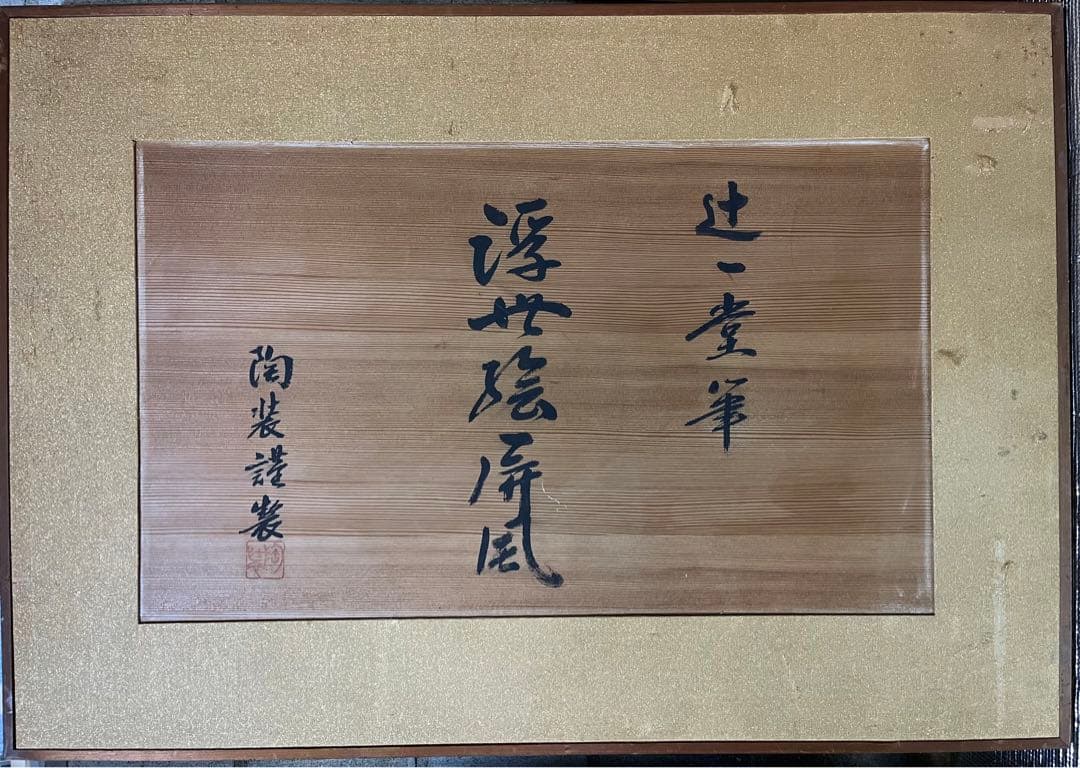 辻一堂筆
浮世絵屏風
陶装謹製